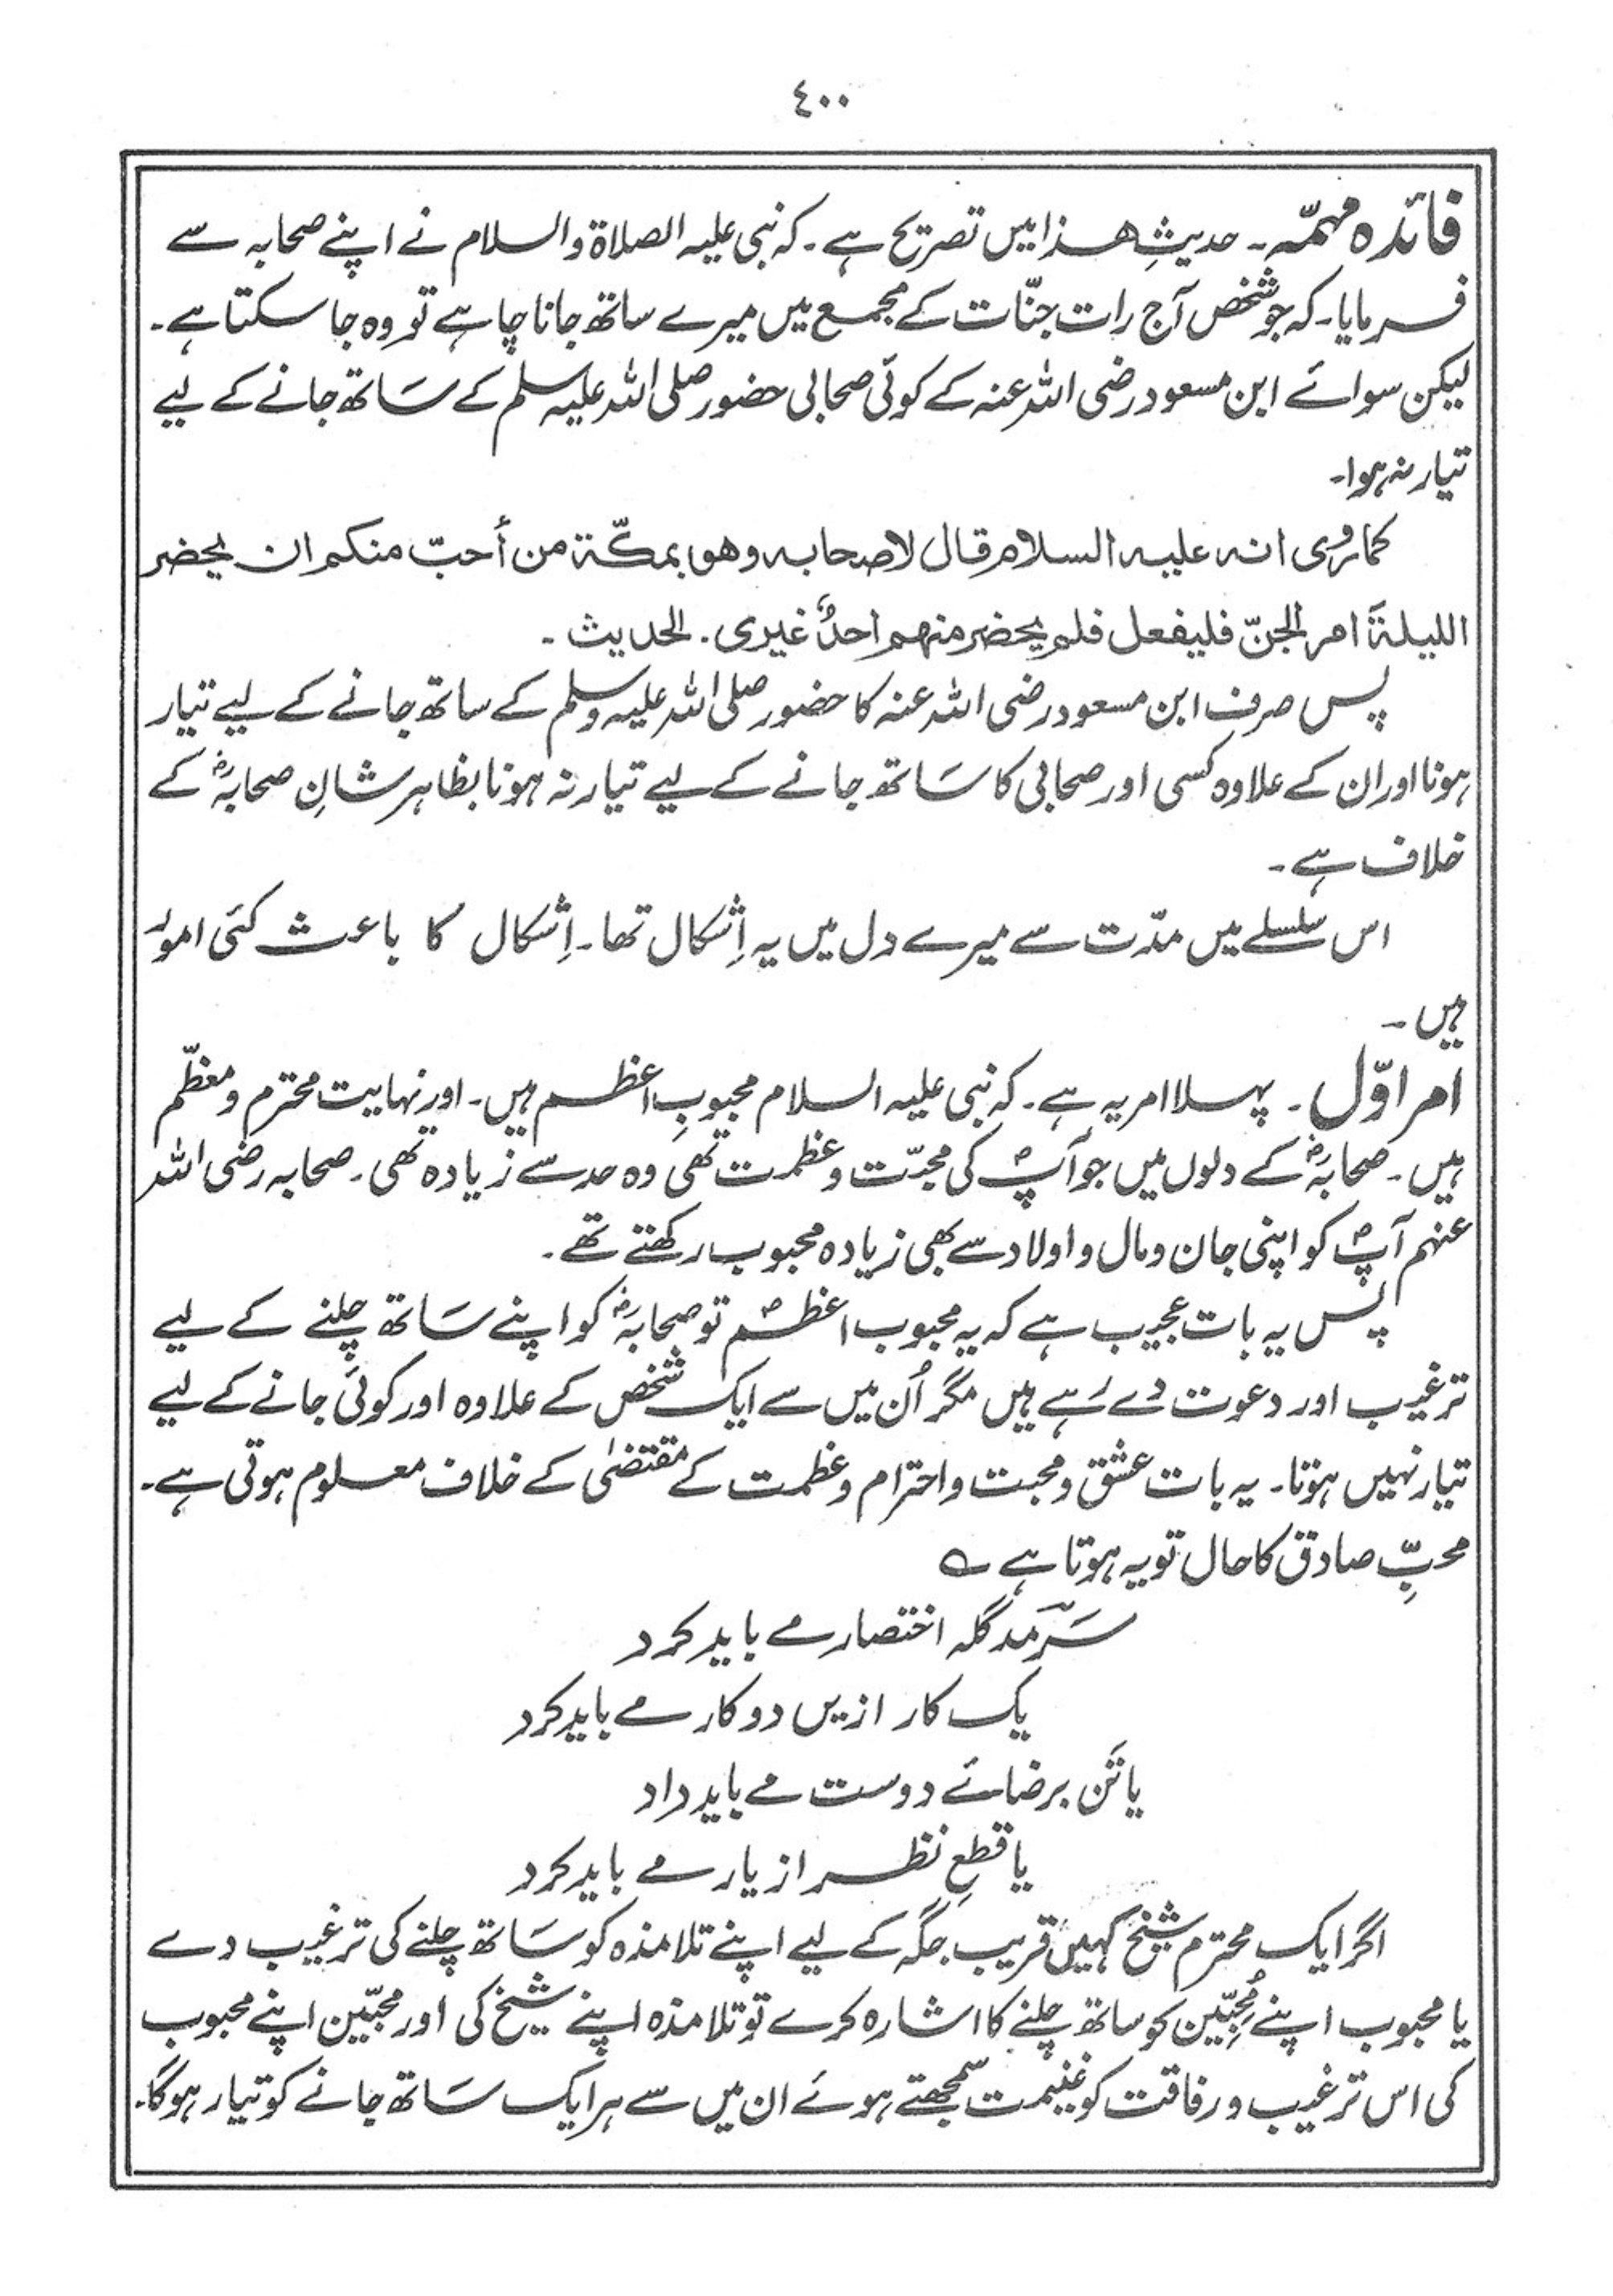 ٤٠٠
فائدہ مہمّہ ۔ حدیثِ ھذا میں تصریح ہے ۔ کہ نبی علیہ الصلاۃ والسلام نے اپنے صحابہ سے
فرمایا۔ کہ جو شخص آج رات جنّات کے مجمع میں میرے ساتھ جانا چاہے تو وہ جا سکتا ہے ۔
لیکن سوائے ابن مسعود رضی اللہ عنہ کے کوئی صحابی حضور صلی اللہ علیہ وسلم کے سَاتھ جانے کے لیے
تیار نہ ہوا۔
کما رُوی انہ علیہ السلام قال لاصحابہ وھو بمکّۃ من أحبّ منکم ان یحضر
اللیلۃَ امر الجنّ فلیفعل فلم یحضر منہم احدٌ غیری . الحدیث ۔
پس صرف ابن مسعود رضی اللہ عنہ کا حضور صلی اللہ علیہ وسلم کے ساتھ جانے کے لیے تیار
ہونا اور ان کے علاوہ کسی اور صحابی کا سَاتھ جانے کے لیے تیار نہ ہونا بظاہر شانِ صحابہؓ کے
خلاف ہے ۔
اس سلسلے میں مدّت سے میرے دل میں یہ اِشکال تھا۔ اِشکال کا باعث کئی امور
ہیں ۔
امر اوّل ۔ پہلا امر یہ ہے ۔ کہ نبی علیہ السلام محبوبِ اعظم ہیں ۔ اور نہایت محترم و معظّم
ہیں ۔ صحابہؓ کے دلوں میں جو آپؐ کی محبّت و عظمت تھی وہ حد سے زیادہ تھی ۔ صحابہ رضی اللہ
عنہم آپؐ کو اپنی جان و مال و اولاد سے بھی زیادہ محبوب رکھتے تھے ۔
پس یہ بات عجیب ہے کہ یہ محبوب اعظمؐ تو صحابہؓ کو اپنے سَاتھ چلنے کے لیے
ترغیب اور دعوت دے رہے ہیں مگر اُن میں سے ایک شخص کے علاوہ اور کوئی جانے کے لیے
تیار نہیں ہوتا ۔ یہ بات عشق و محبت و احترام و عظمت کے مقتضیٰ کے خلاف معلوم ہوتی ہے ۔
محبِّ صادق کا حال تو یہ ہوتا ہے ؎
سَرمَد گلہ اختصار مے باید کرد
یک کار ازیں دو کار مے باید کرد
یا تَن برضائے دوست مے باید داد
یا قطعِ نظر از یار مے باید کرد
اگر ایک محترم شیخ کہیں قریب جگہ کے لیے اپنے تلامذہ کو سَاتھ چلنے کی ترغیب دے
یا محبوب اپنے مُحِبّین کو ساتھ چلنے کا اشارہ کرے تو تلامذہ اپنے شیخ کی اور محبّین اپنے محبوب
کی اس ترغیب و رفاقت کو غنیمت سمجھتے ہوئے ان میں سے ہر ایک سَاتھ جانے کو تیار ہوگا۔